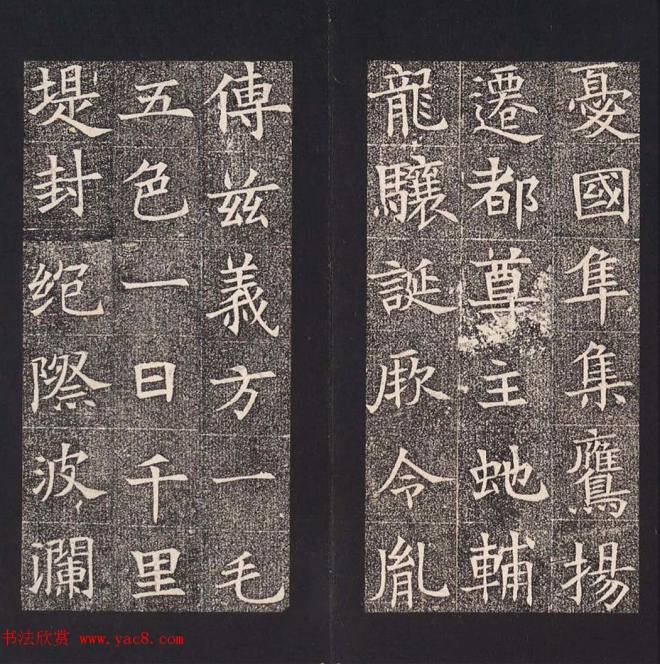 憂國隼集鷹揚
遷都尊主虵輔
龍驤誕厥令胤
傳兹義方一毛
五色一日千里
堤封絶際波瀾
书法欣赏 www.yac8.com